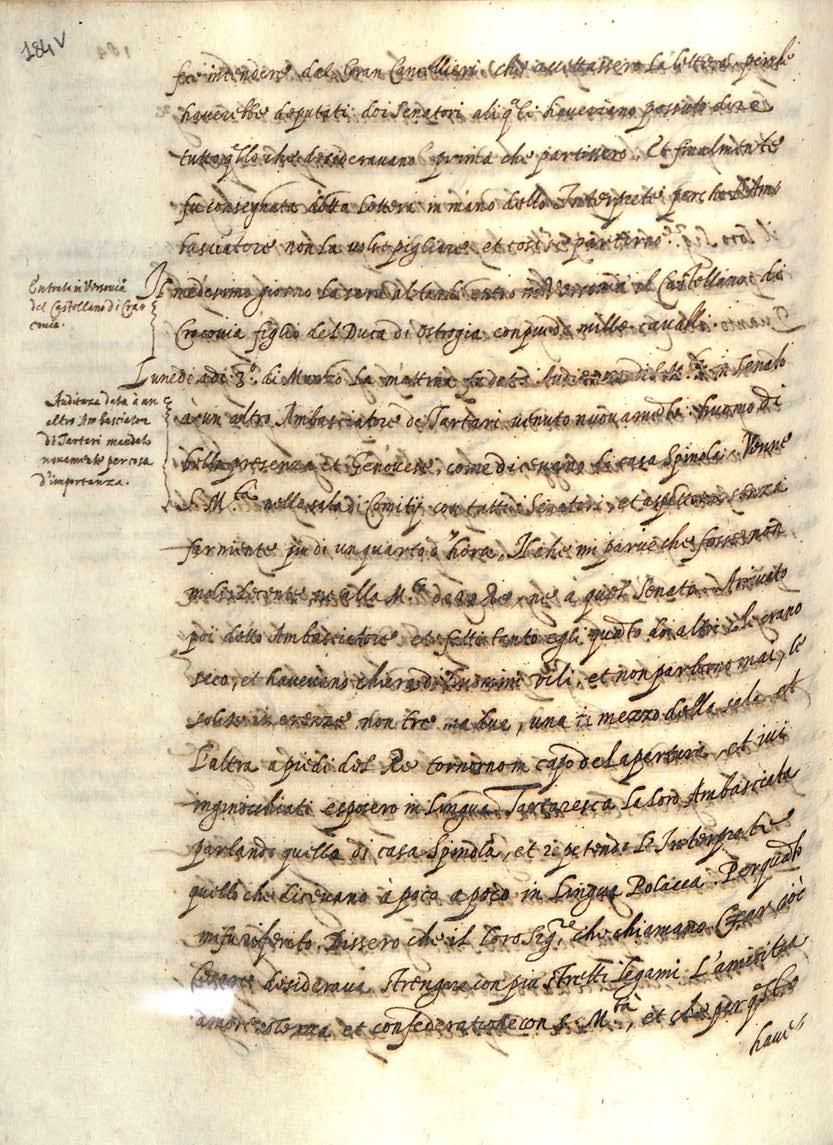 184v
fece intendere dal Gran Cancellieri, che accettassero la lettera, perche
haverebbe deputati doi Senatori ali q.li haveriano possuto dire
tutto q.llo che desideravano prima che partissero. Et finalmente
fu consegnata detta lettera in mano dello Interprete perche l'Am
basciatore non la volse pigliare et così se partirno.
Entrata in Versovia
del Castellano di Cra
covia.
Il medesimo giorno la sera al tardi entrò in Versovia il Castellano di
Cracovia figlio del Duca di Ostrogia con piu de mille cavalli.
Audienza data à un
altro Ambasciatore
di Tartari mandato
novamente per cosa
d'importanza.
Lunedè adi 3.º di Marzo la mattina fu data Audienza di S. M.tà in Senato
à un altro Ambasciatore de Tartari venuto nuovamente huomo di
bella presenza et Genovese, come dicevano di casa Spinola. Venne
S. M.tà nella sala di Comitij con tutti i Senatori, et aspettorno senza
far niente piu di un quarto d'hora, Il che mi parve che fosse non
molto decente ne alla M.tà da un Re, ne à quel Senato. Arrivato
poi detto Ambasciatore et fatte tanto egli quanto doi altri che erano
seco, et havevano chiera di huomini vili, et non parlorno mai, le
solite riverenze non tre ma due, una in mezzo della sala et
l'altra a piedi del Re tornorno in capo de l'apertura, et ivi
inginocchiati esposero in lingua Tartaresca la loro Ambasciata
parlando quello di casa Spinola, et repetendo l'Interprete
quello che dicevano à poco a poco in lingua Polacca. Per quanto
mi fu riferito Dissero che il loro Sig.re che chiamano Czar cioè
Cesare desiderava strengere con piu stretti legami l'amicitia
amorevolezza et confederatione con S. M.tà, et che per q.sto
have